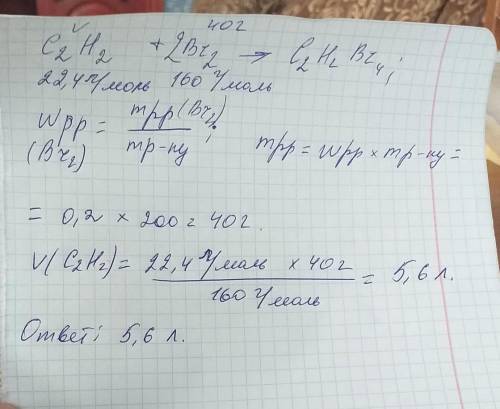 V 40г
C₂H₂ + 2Br₂ → C₂H₂Br₄;
22,4 л/моль 160 г/моль
Wрр (Br₂) = mрр(Br₂) / mр-ну; mрр = Wрр × mр-ну =
= 0,2 × 200 = 40г.
V(C₂H₂) = 22,4 л/моль × 40г / 160 г/моль = 5,6 л.
Ответ: 5,6 л.